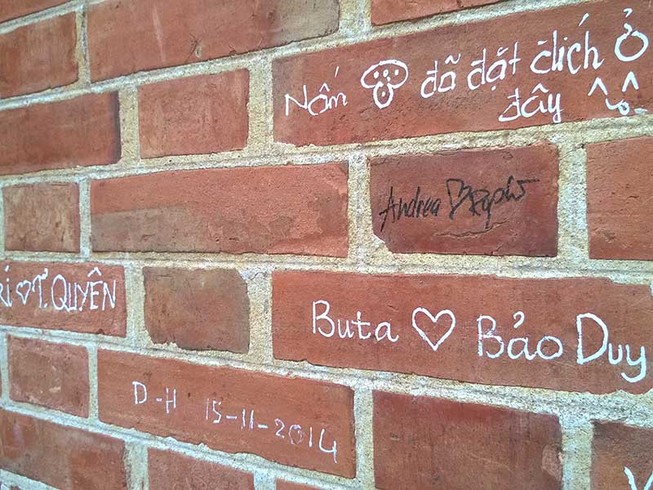 Nấm đã đặt đích ở
đây
Andrea
T. QUYÊN
Buta ♡ Bảo Duy
D-H 15-11-2014